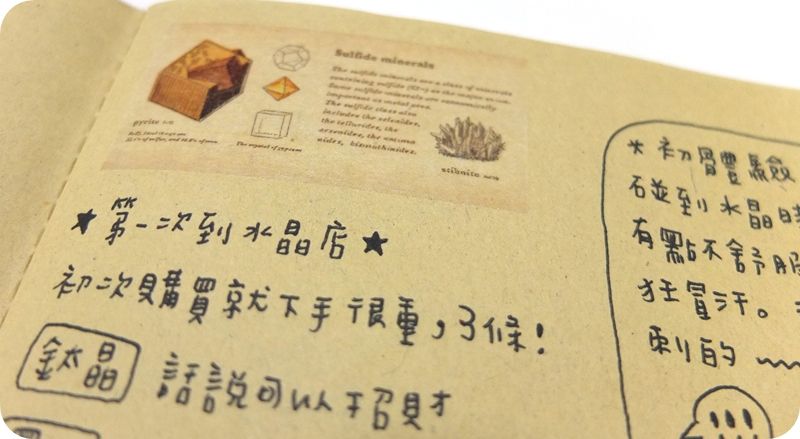 Sulfide minerals
The sulfide minerals are a class of minerals
containing sulfide (S2-) as the major anion.
Some sulfide minerals are economically
important as metal ores.
The sulfide class also
includes the selenides,
the tellurides, the
arsenides, the
pyrite
The crystal of pyrite
stibnite
★第一次到水晶店★
初次購買就下手很重，3條！
鈦晶 話說可以招財
*初體驗
碰到水晶時
有點不舒服
狂冒汗。
刺的